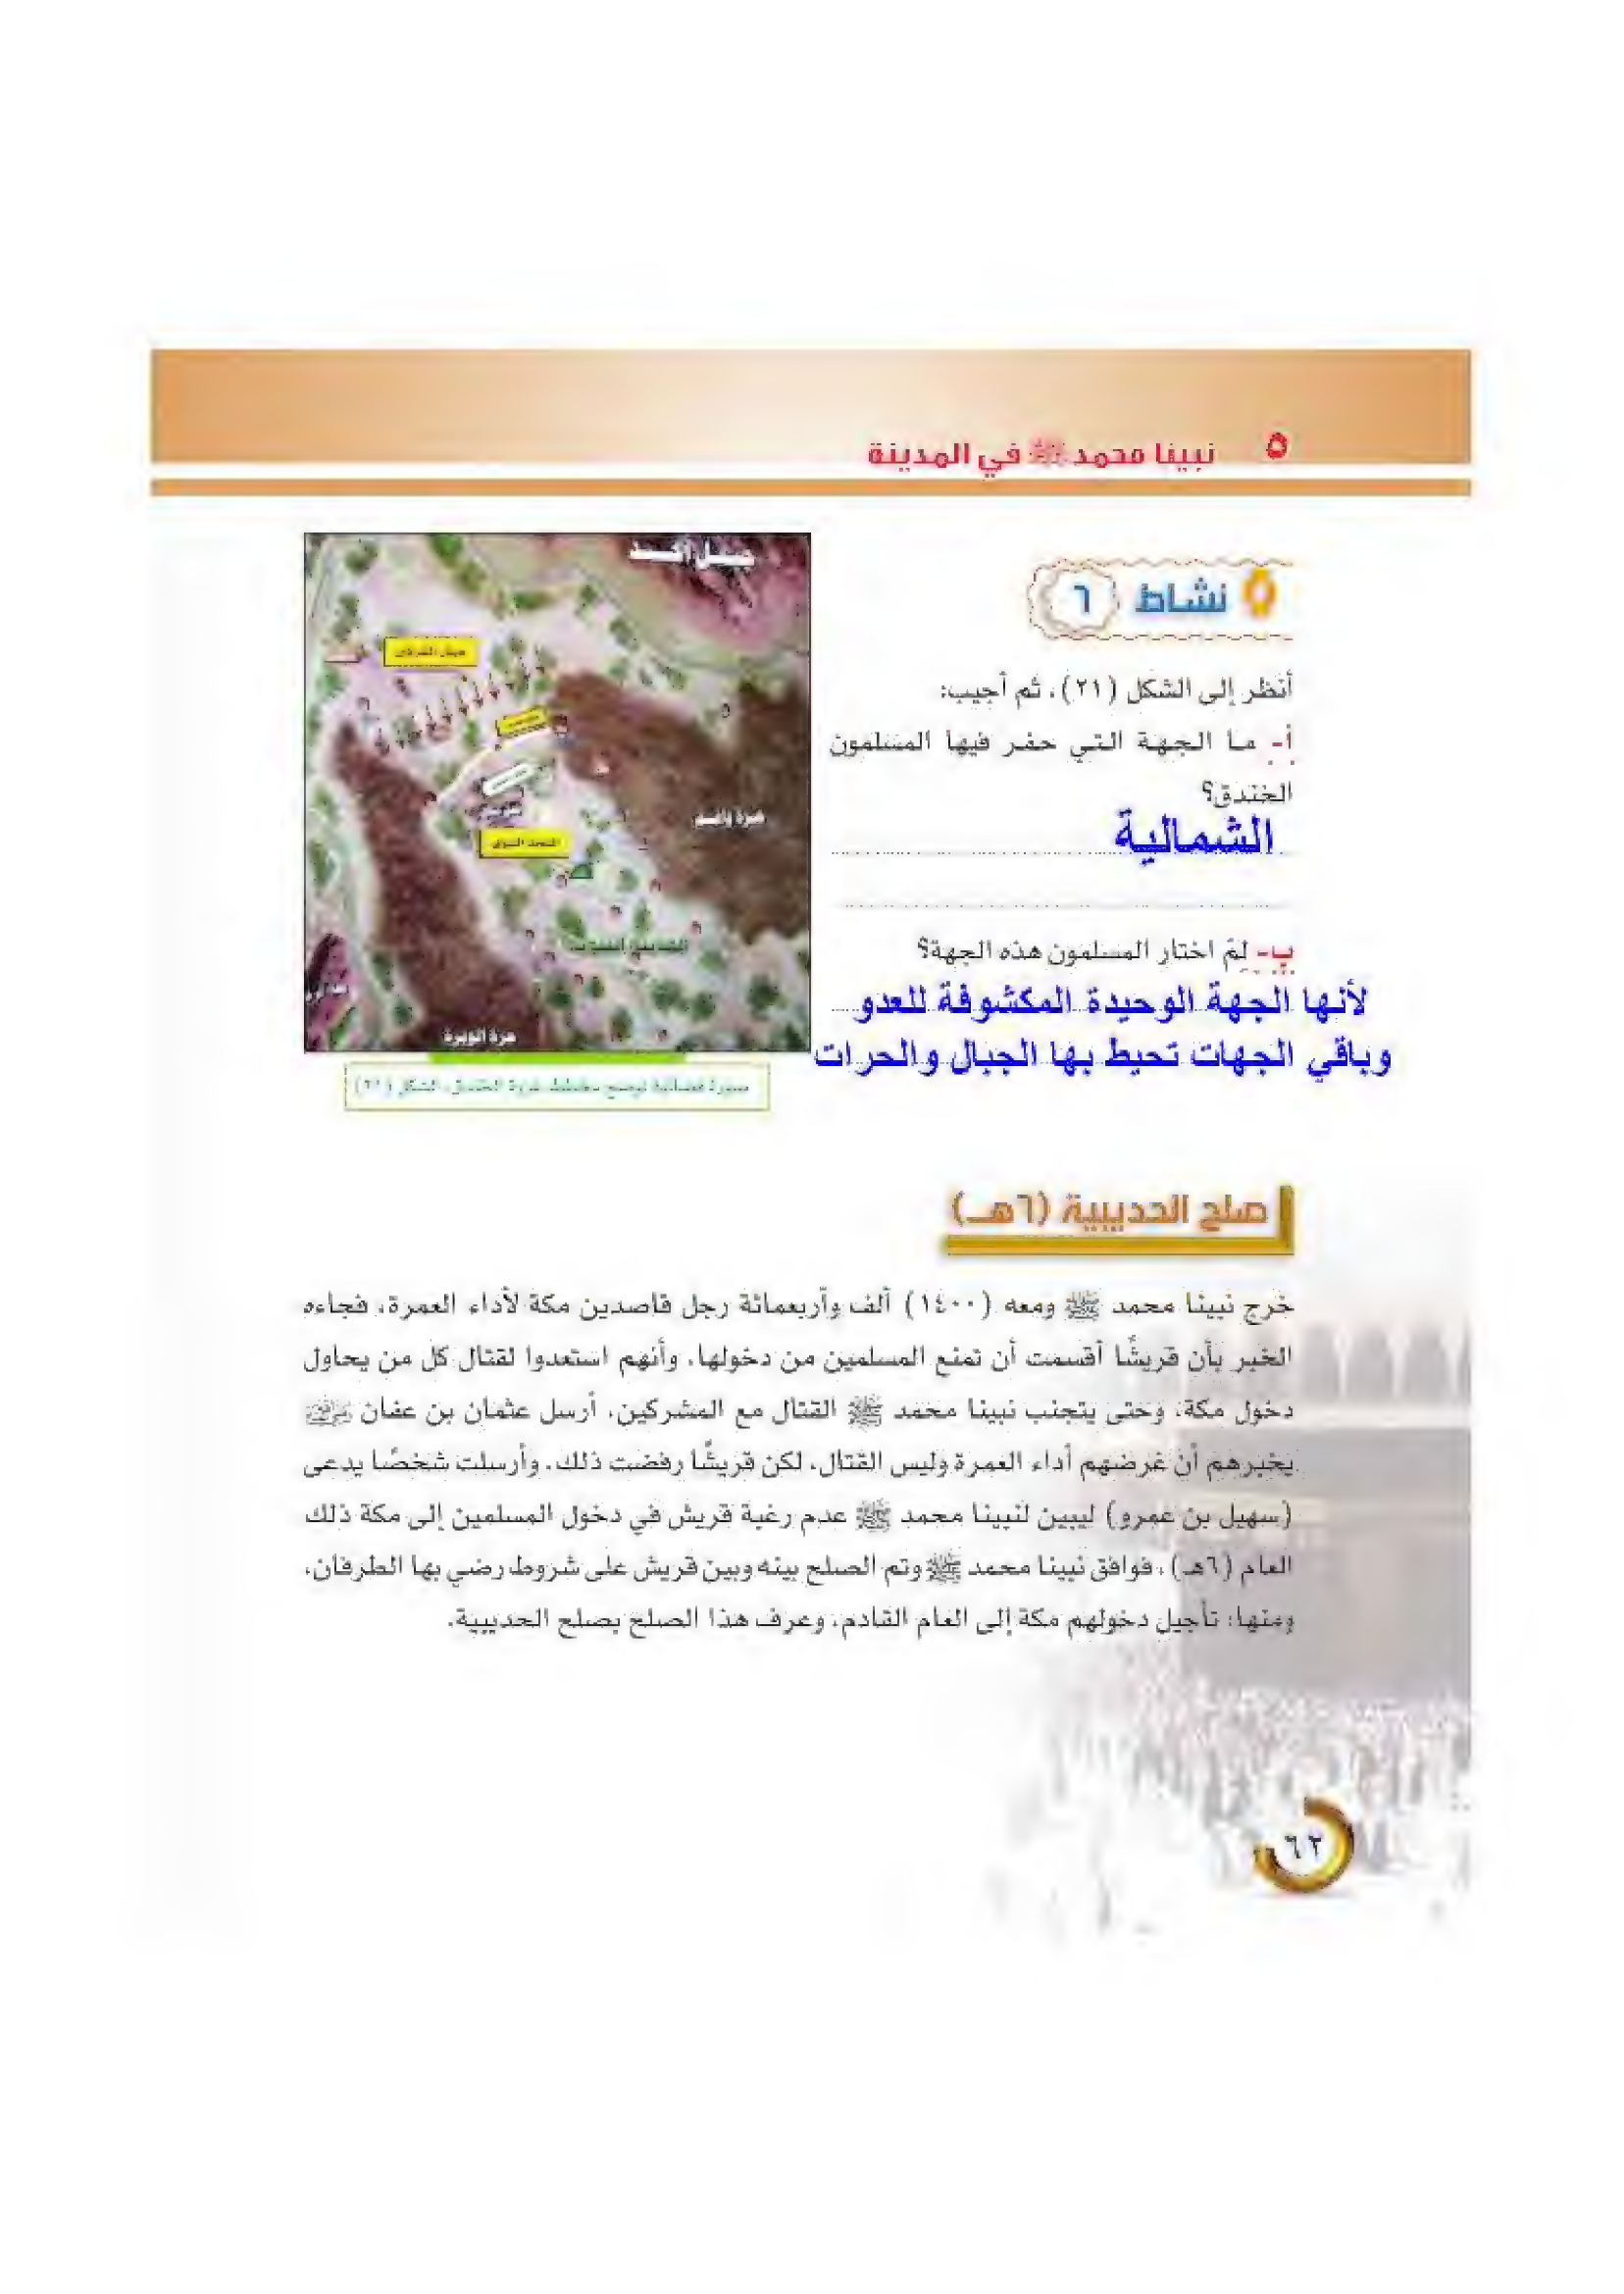 ٥ نبينا محمد ﷺ في المدينة
نشاط ٦
أنظر إلى الشكل (٢١)، ثم أجيب:
أ- ما الجهة التي حفر فيها المسلمون
الخندق؟
الشمالية
ب- لمَ اختار المسلمون هذه الجهة؟
لأنها الجهة الوحيدة المكشوفة للعدو
وباقي الجهات تحيط بها الجبال والحرات
جبل أحد
حرة واقم
المسجد النبوي
حرة الوبرة
صورة فضائية توضح مخطط غزوة الخندق، الشكل (٢١)
صلح الحديبية (٦هـ)
خرج نبينا محمد ﷺ ومعه (١٤٠٠) ألف وأربعمائة رجل قاصدين مكة لأداء العمرة، فجاءه
الخبر بأن قريشًا أقسمت أن تمنع المسلمين من دخولها، وأنهم استعدوا لقتال كل من يحاول
دخول مكة، وحتى يتجنب نبينا محمد ﷺ القتال مع المشركين، أرسل عثمان بن عفان رضي الله عنه
يخبرهم أن غرضهم أداء العمرة وليس القتال، لكن قريشًا رفضت ذلك، وأرسلت شخصًا يدعى
(سهيل بن عمرو) ليبين لنبينا محمد ﷺ عدم رغبة قريش في دخول المسلمين إلى مكة ذلك
العام (٦هـ)، فوافق نبينا محمد ﷺ وتم الصلح بينه وبين قريش على شروط رضي بها الطرفان،
ومنها: تأجيل دخولهم مكة إلى العام القادم، وعرف هذا الصلح بصلح الحديبية.
٦٢